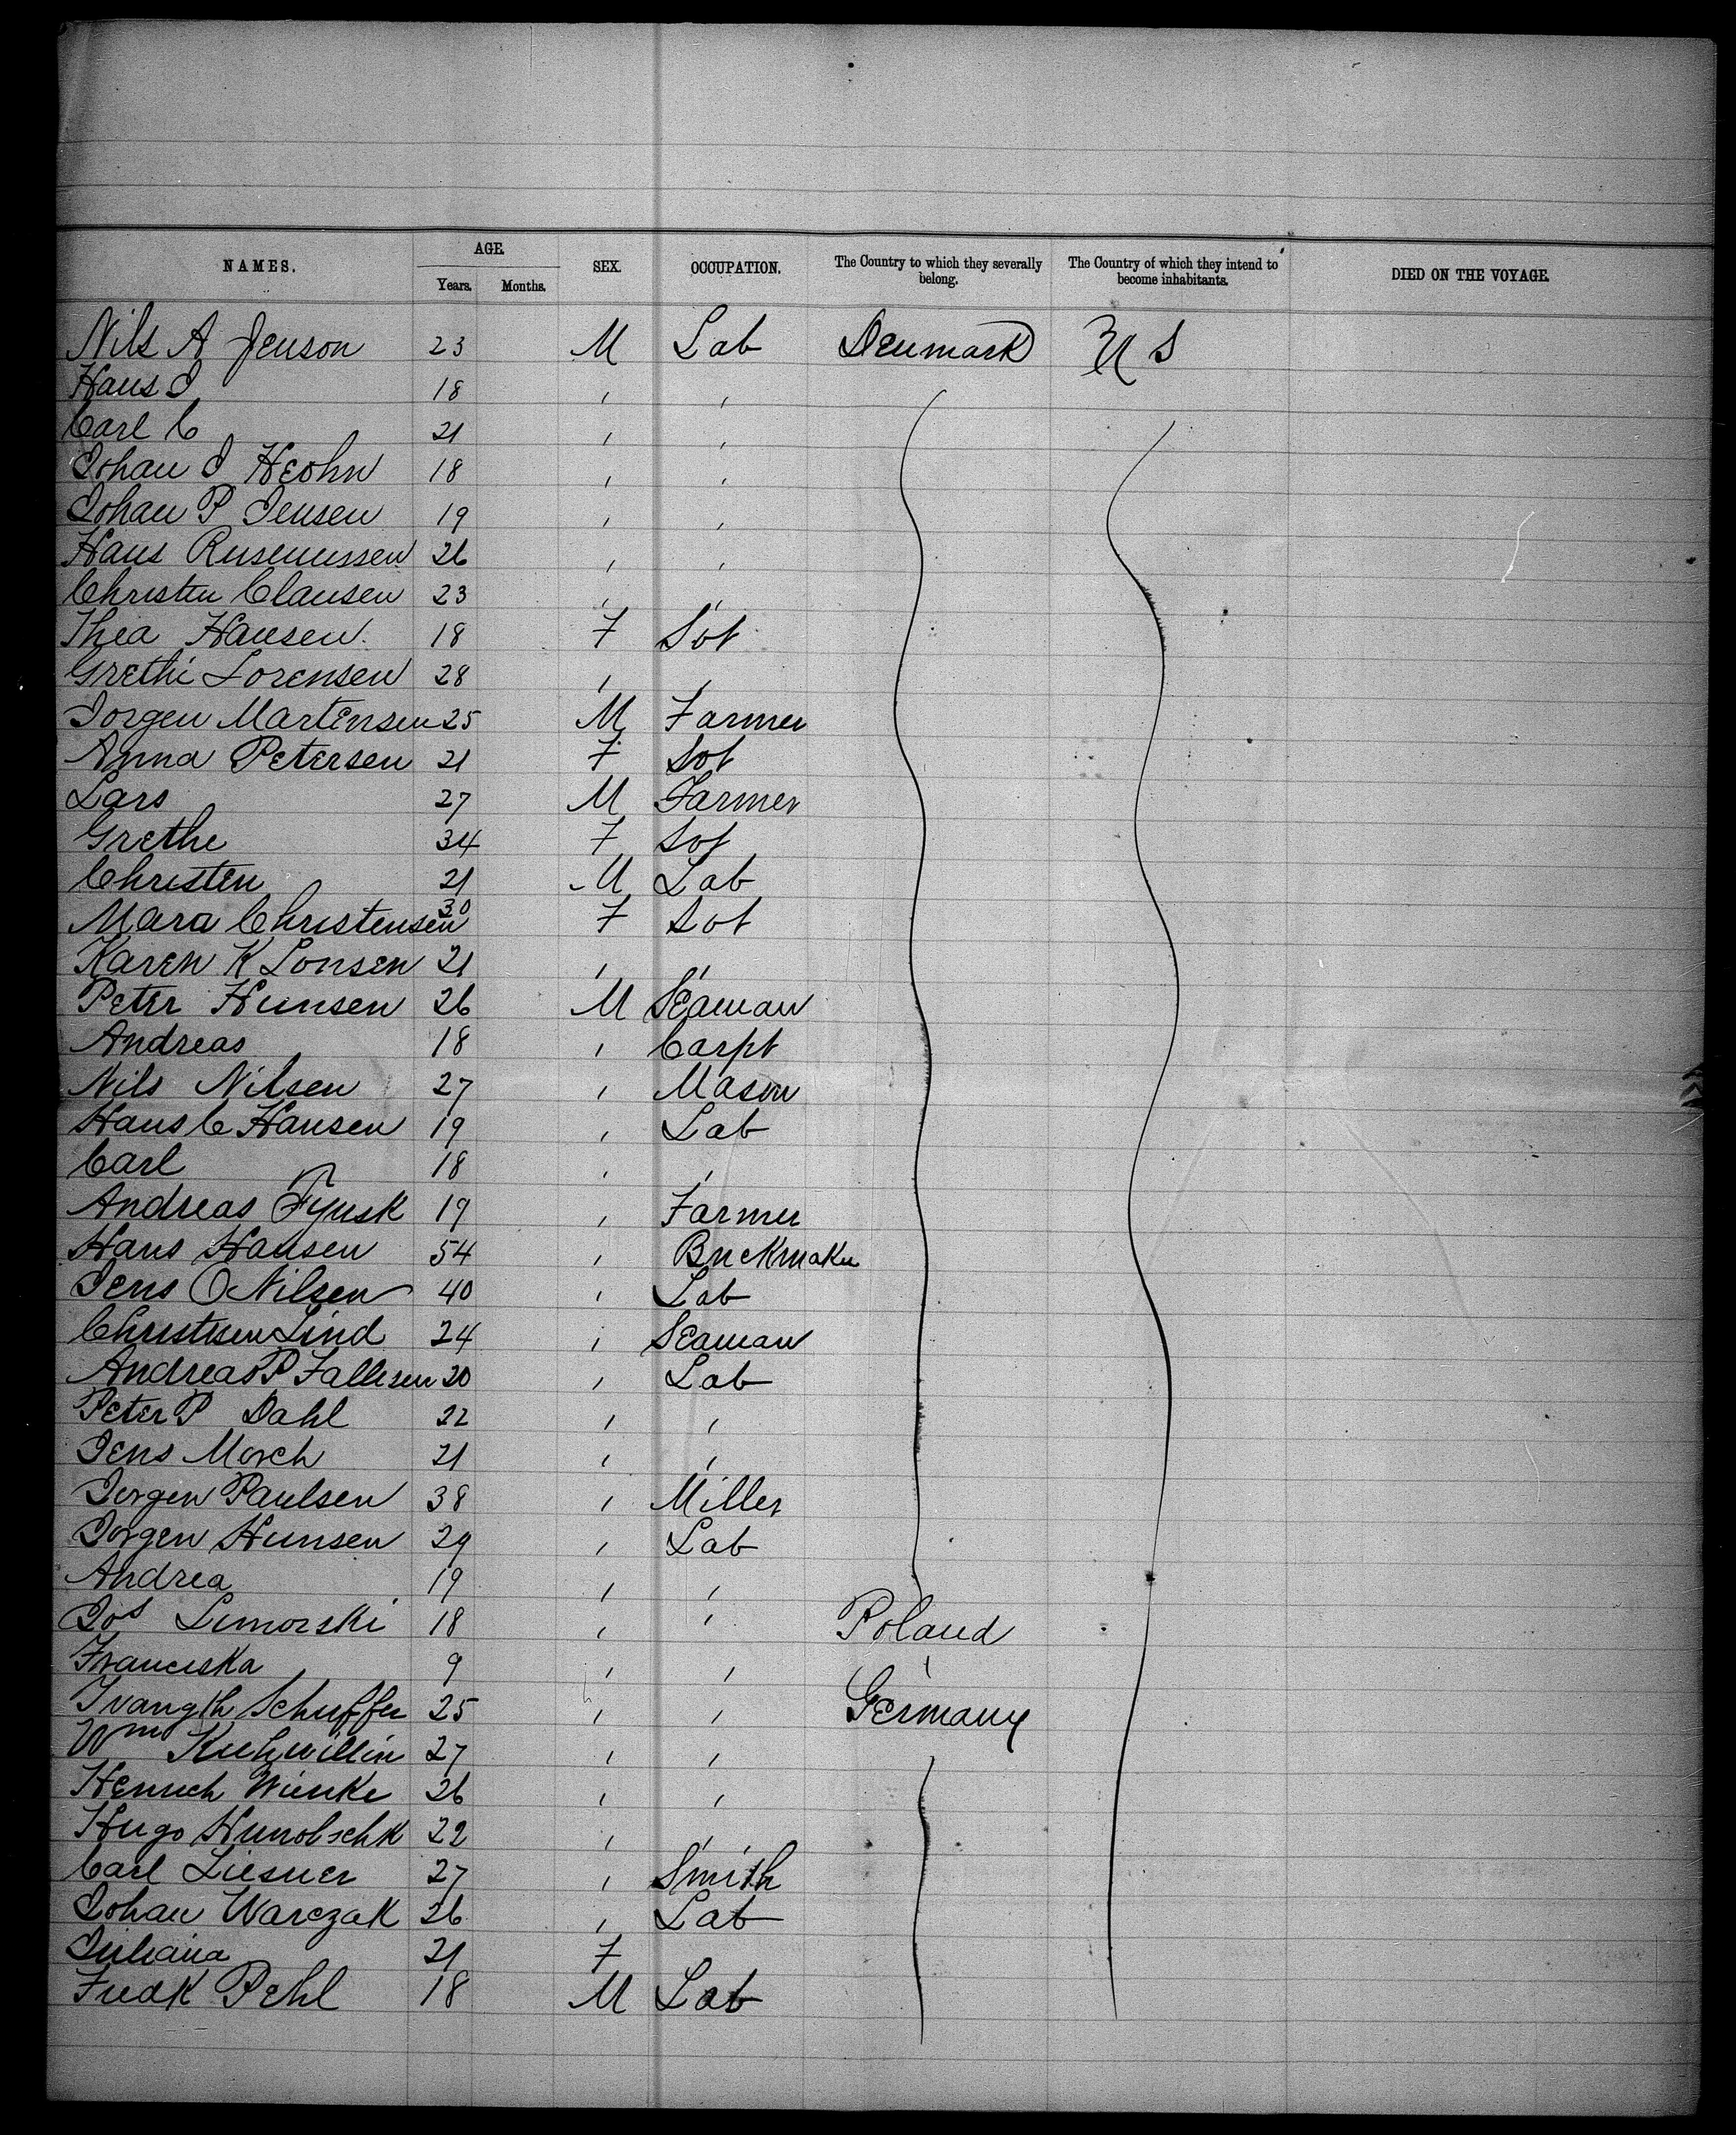 NAMES. AGE. SEX. OCCUPATION. The Country to which they severally belong. The Country of which they intend to become inhabitants. DIED ON THE VOYAGE.
Years. Months.
Nils A Jenson 23 M Lab Denmark U S
Hans J 18 " "
Carl C 21 " "
Johan J Heohn 18 " "
Johan P Jensen 19 " "
Hans Rusmussen 26 " "
Christen Clausen 23 " "
Thea Hansen 18 F Sot
Grethi Lorensen 28 " "
Jorgen Martensen 25 M Farmer
Anna Petersen 21 F Sot
Lars 27 M Farmer
Grethe 34 F Sot
Christen 21 M Lab
Mara Christensen 30 F Sot
Karen K Lonsen 21 " "
Peter Hunsen 26 M Seaman
Andreas 18 " Carpt
Nils Nilsen 27 " Mason
Hans C Hansen 19 " Lab
Carl 18 " "
Andreas Fynsk 19 " Farmer
Hans Hansen 54 " Brickmaker
Jens O Nilsen 40 " Lab
Christisen Lind 24 " Seaman
Andreas P Fallesen 20 " Lab
Peter P Dahl 22 " "
Jens Morch 21 " "
Jorgen Paulsen 38 " Miller
Jorgen Hunsen 29 " Lab
Andrea 19 " "
Jos Limorski 18 " " Poland
Franciska 9 " " "
Schuffer 25 " " Germany
Wm 27 " "
Henrich Wienke 26 " "
Hugo 22 " "
Carl Liesner 27 " Smith
Johan Warczak 26 " Lab
Juliana 21 F
Fredk Pehl 18 M Lab